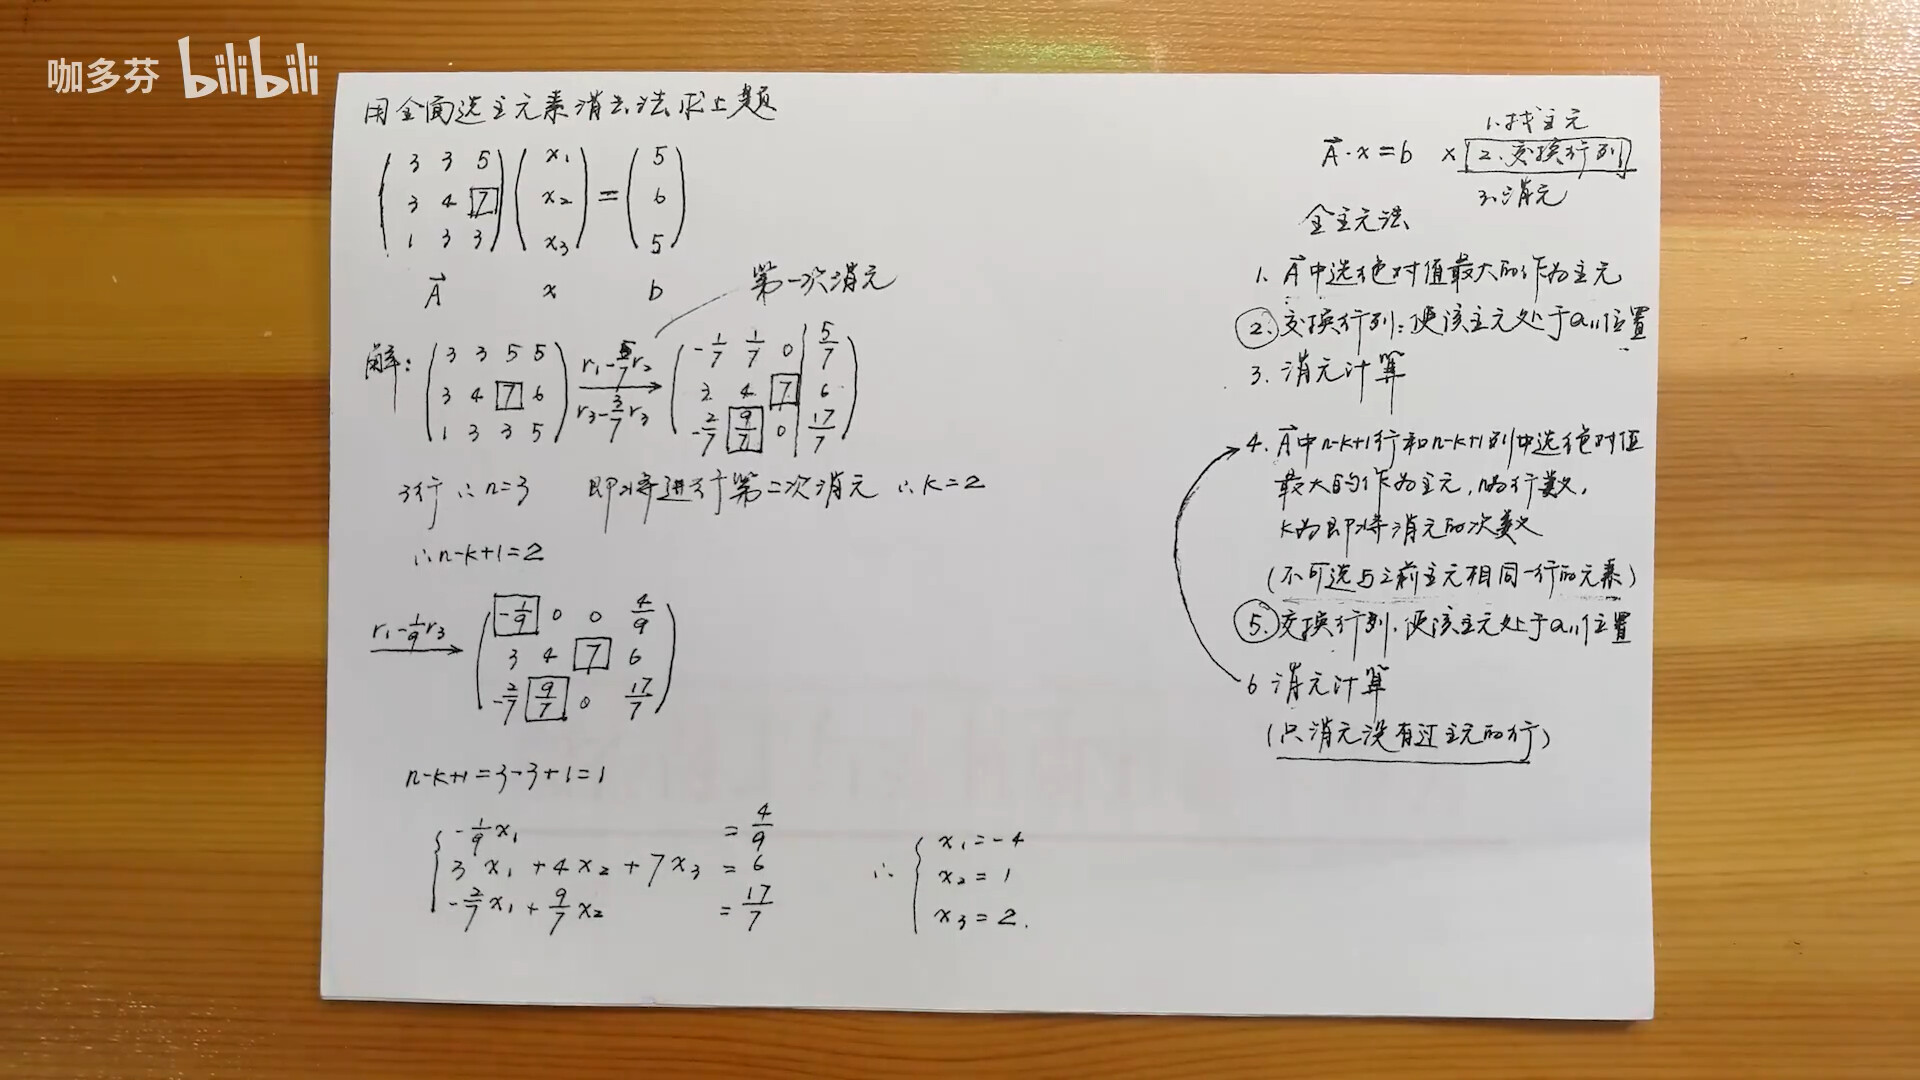 咖多芬 bilibili
用全面选主元素消去法求上题
3 3 5 x₁ 5
3 4 7 x₂ = 6
1 3 3 x₃ 5
A⃗ x b
第一次消元
解: 3 3 5 5 r₁-5/7r₂ -1/7 1/7 0 5/7
3 4 7 6 3 4 7 6
1 3 3 5 r₃-3/7r₃ -2/7 9/7 0 17/7
3行 ∴n=3 即将进行第二次消元 ∴k=2
∴n-k+1=2
r₁-1/9r₃ -1/9 0 0 4/9
3 4 7 6
-2/7 9/7 0 17/7
n-k+1=3-3+1=1
-1/9x₁ = 4/9
3x₁+4x₂+7x₃ = 6
-2/7x₁+9/7x₂ = 17/7
∴ x₁=-4
x₂=1
x₃=2.
1.找主元
A⃗·x=b × 2.交换行列
3.消元
全主元法
1. A⃗中选绝对值最大的作为主元
2. 交换行列:使该主元处于a₁₁位置
3. 消元计算
4. A⃗中n-k+1行和n-k+1列中选绝对值
最大的作为主元,n为行数,
k为即将消元的次数
(不可选与之前主元相同一行的元素)
5. 交换行列,使该主元处于a₁₁位置
6 消元计算
(只消元没有过主元的行)